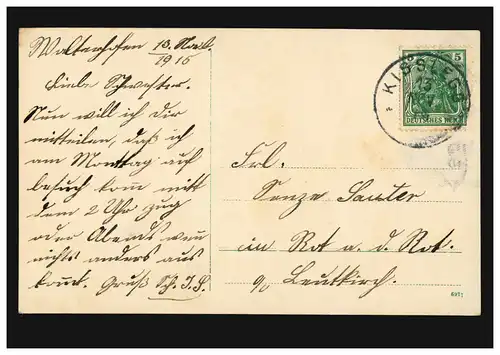 Waltershofen 13. Nov.
1915
Liebe Schwester.
Nun will ich dir
mitteilen, daß ich
am Montag auf
besuch kom mitt
dem 2 Uhr zug
oder Abends wen
nichts anders aus
komt. Gruß Sch. J. S.
5
DEUTSCHES REICH
KISSLEGG
Frl.
Senze Sauter
in Rot a. d. Rot.
o/ Leutkirch.